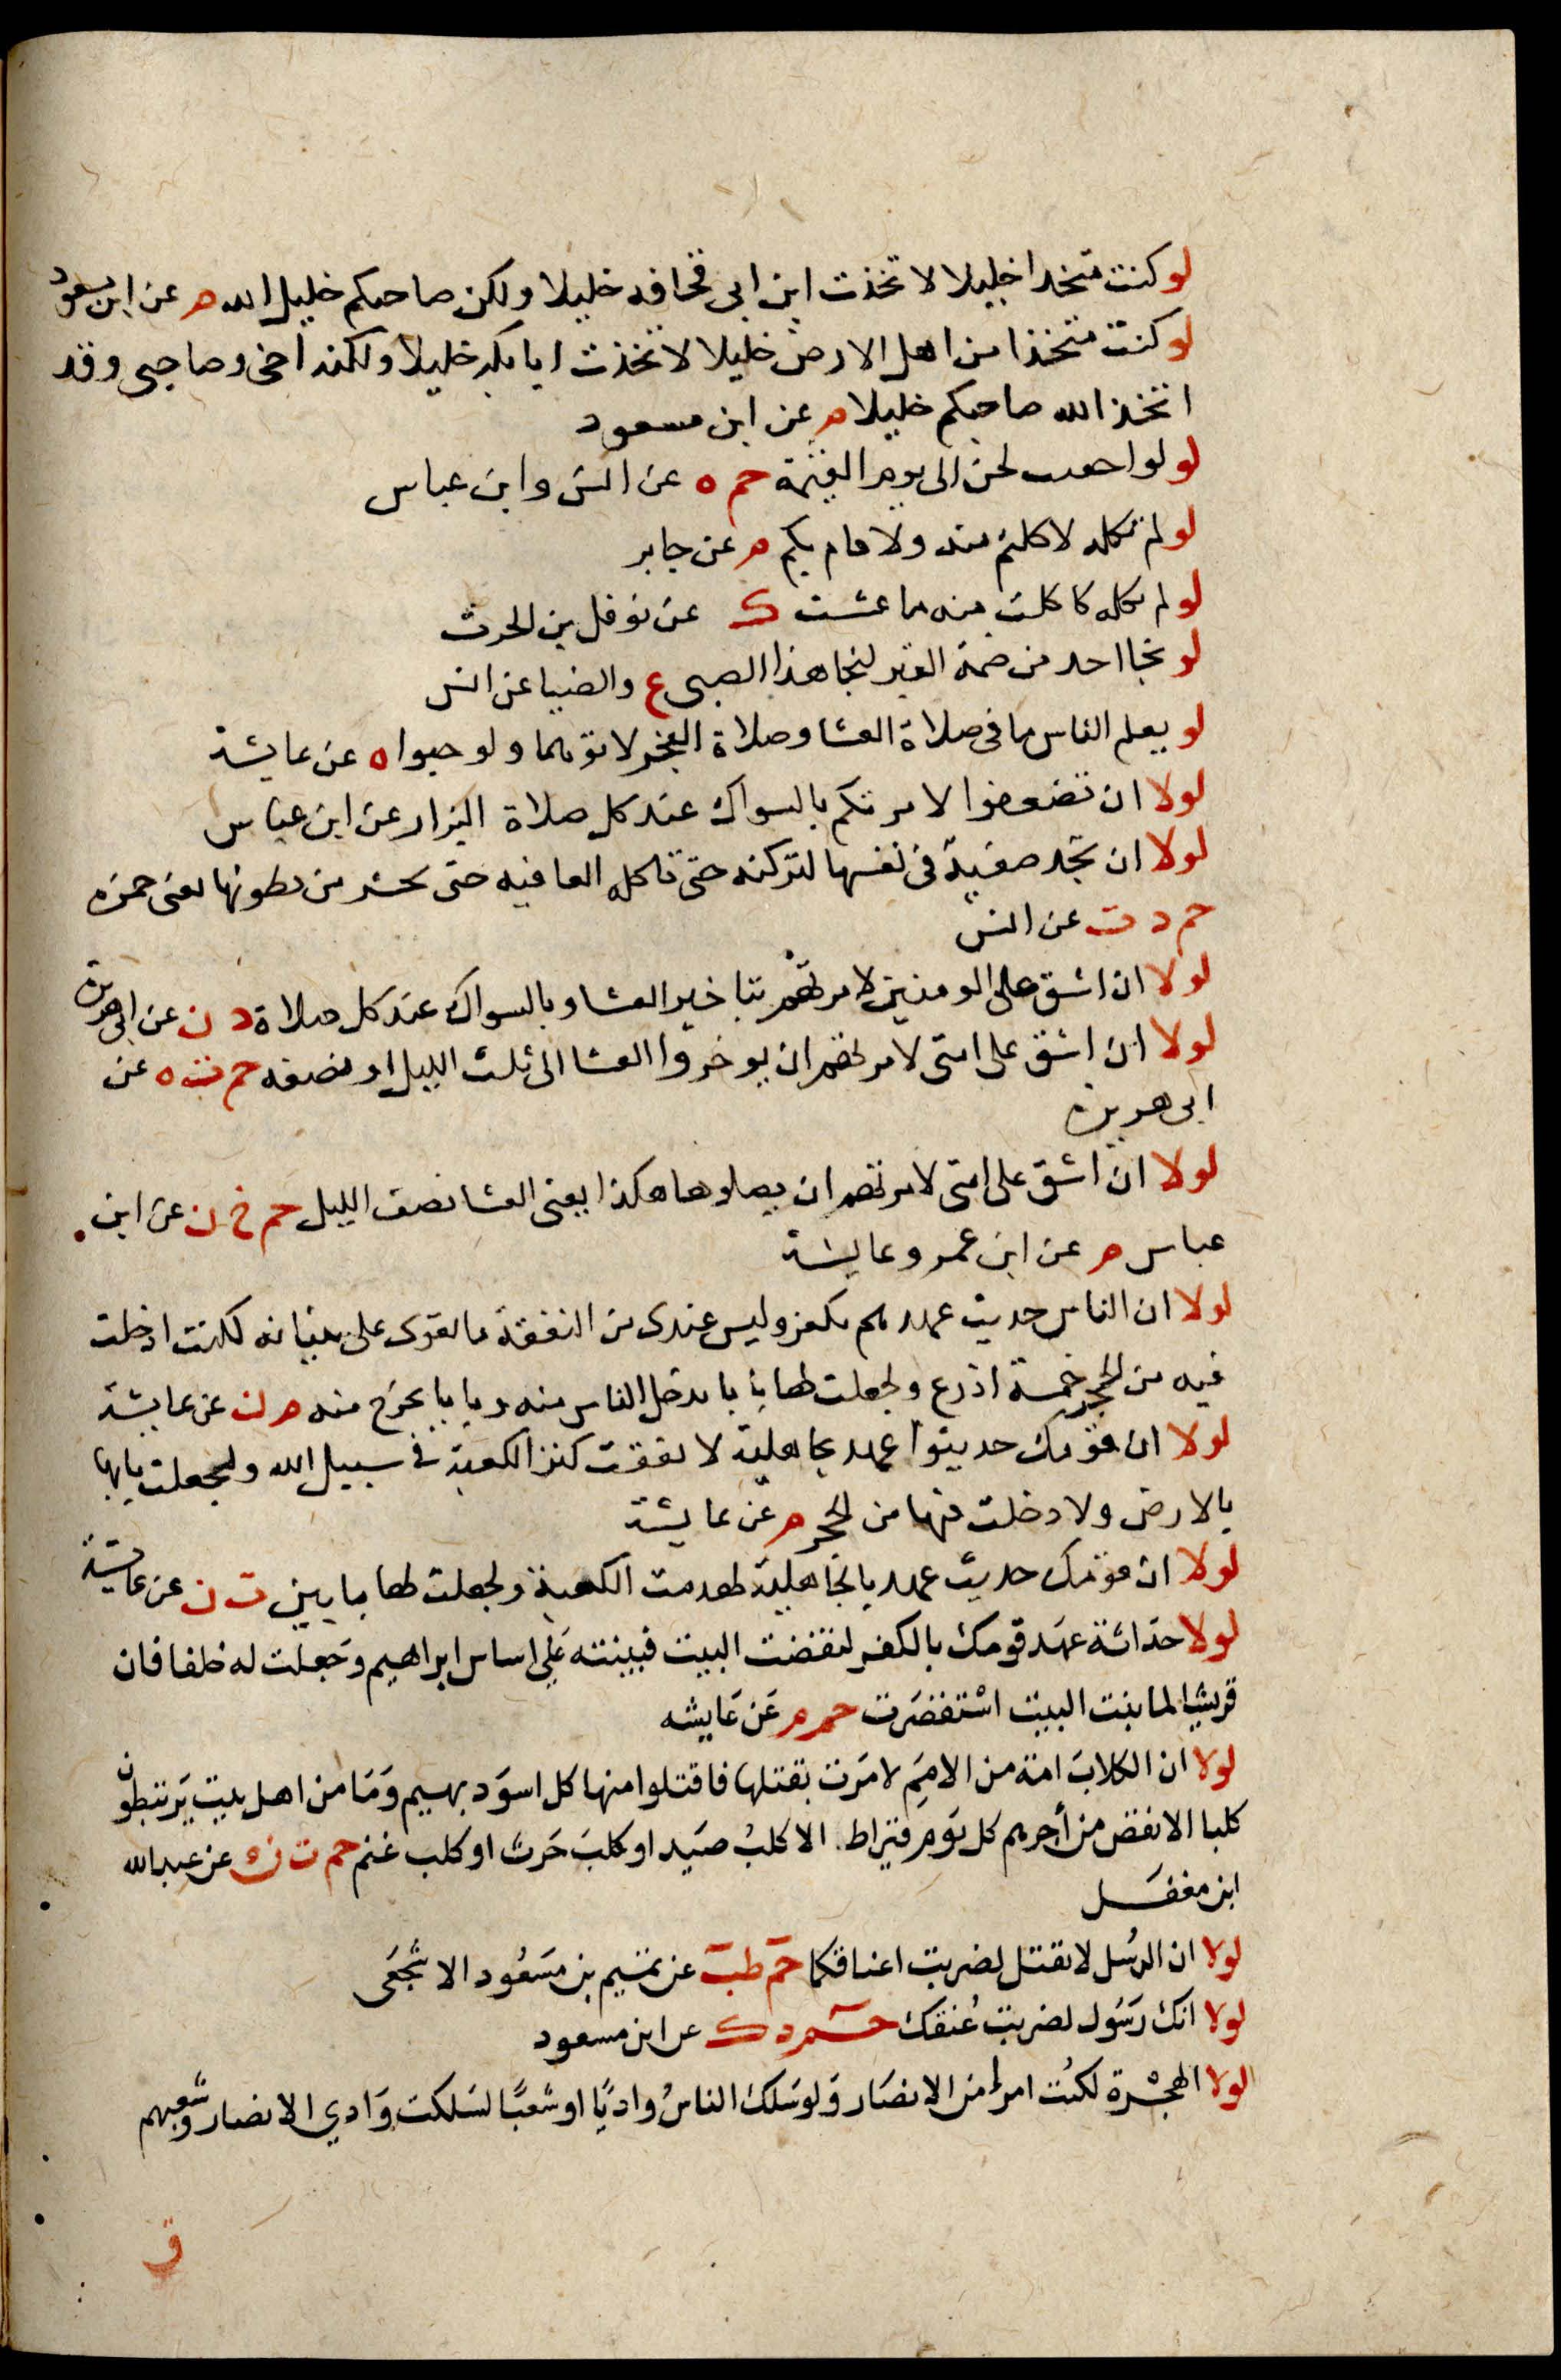 لو كنت متخدا خليلا لاتخذت ابن ابى قحافه خليلا ولكن صاحبكم خليل الله م عن ابن مسعود
لو كنت متخذا من اهل الارض خليلا لاتخذت ابابكر خليلا ولكنه اخى وصاحبى وقد
اتخذ الله صاحبكم خليلا م عن ابن مسعود
لو لواحعت لحن الى يوم القيمة حم ه عن انس وابن عباس
لو لم تكله لاكلتم منه ولاقام بكم م عن جابر
لو لم تكله كاكلت منه ما عشت ك عن نوفل بن الحرث
لو نجا احد من ضمة القبر لنجا هذا الصبى ع والضيا عن انس
لو يعلم الناس ما فى صلاة العشا وصلاة الفجر لاتوهما ولو حبوا ه عن عايشة
لولا ان تضعفوا لامرتكم بالسواك عند كل صلاة البزار عن ابن عباس
لولا ان تجد صفية فى نفسها لتركته حتى تاكله العافيه حتى يحشر من بطونها يعنى حمزه
حم د ت عن انس
لولا ان اشق على المومنين لامرتهم بتاخير العشا وبالسواك عند كل صلاة د ن عن ابى هريرة
لولا ان اشق على امتى لامرتهم ان يوخروا العشا الى ثلث الليل او نصفه حم ت ه عن
ابى هريره
لولا ان اشق على امتى لامرتهم ان يصلوها هكذا يعنى العشا نصف الليل حم خ ن عن ابن
عباس م عن ابن عمر وعايشة
لولا ان الناس حديث عهدهم بكفر وليس عندى من النفقة ما يقوى على بنيانه لكنت ادخلت
فيه من الحجر خمسة اذرع ولجعلت لها بابا يدخل الناس منه وبابا يخرج منه م ن عن عايشة
لولا ان قومك حديثوا عهد بجاهلية لانفقت كنز الكعبة فى سبيل الله ولجعلت بابها
بالارض ولادخلت فيها من الحجر م عن عايشة
لولا ان قومك حديث عهد بالجاهلية لهدمت الكعبة ولجعلت لها بابين ت ن عن عايشة
لولا حداثة عهد قومك بالكفر لنقضت البيت فبينته على اساس ابراهيم وجعلت له خلفا فان
قريشا لما بنت البيت استقصرت حم م عن عايشه
لولا ان الكلاب امة من الامم لامرت بقتلها فاقتلوا منها كل اسود بهيم وما من اهل بيت يرتبطون
كلبا الا نقص من أجرهم كل يوم قيراط الا كلب صيد او كلب حرث او كلب غنم حم ت ن ه عن عبد الله
ابن مغفل
لولا ان الرسل لا تقتل لضربت اعناقكما حم طب عن نعيم بن مسعود الاشجعى
لولا انك رسول لضربت عنقك حم د ك عن ابن مسعود
لولا الهجرة لكنت امرا من الانصار ولو سلك الناس واديا او شعبا لسلكت وادي الانصار وشعبهم
ق